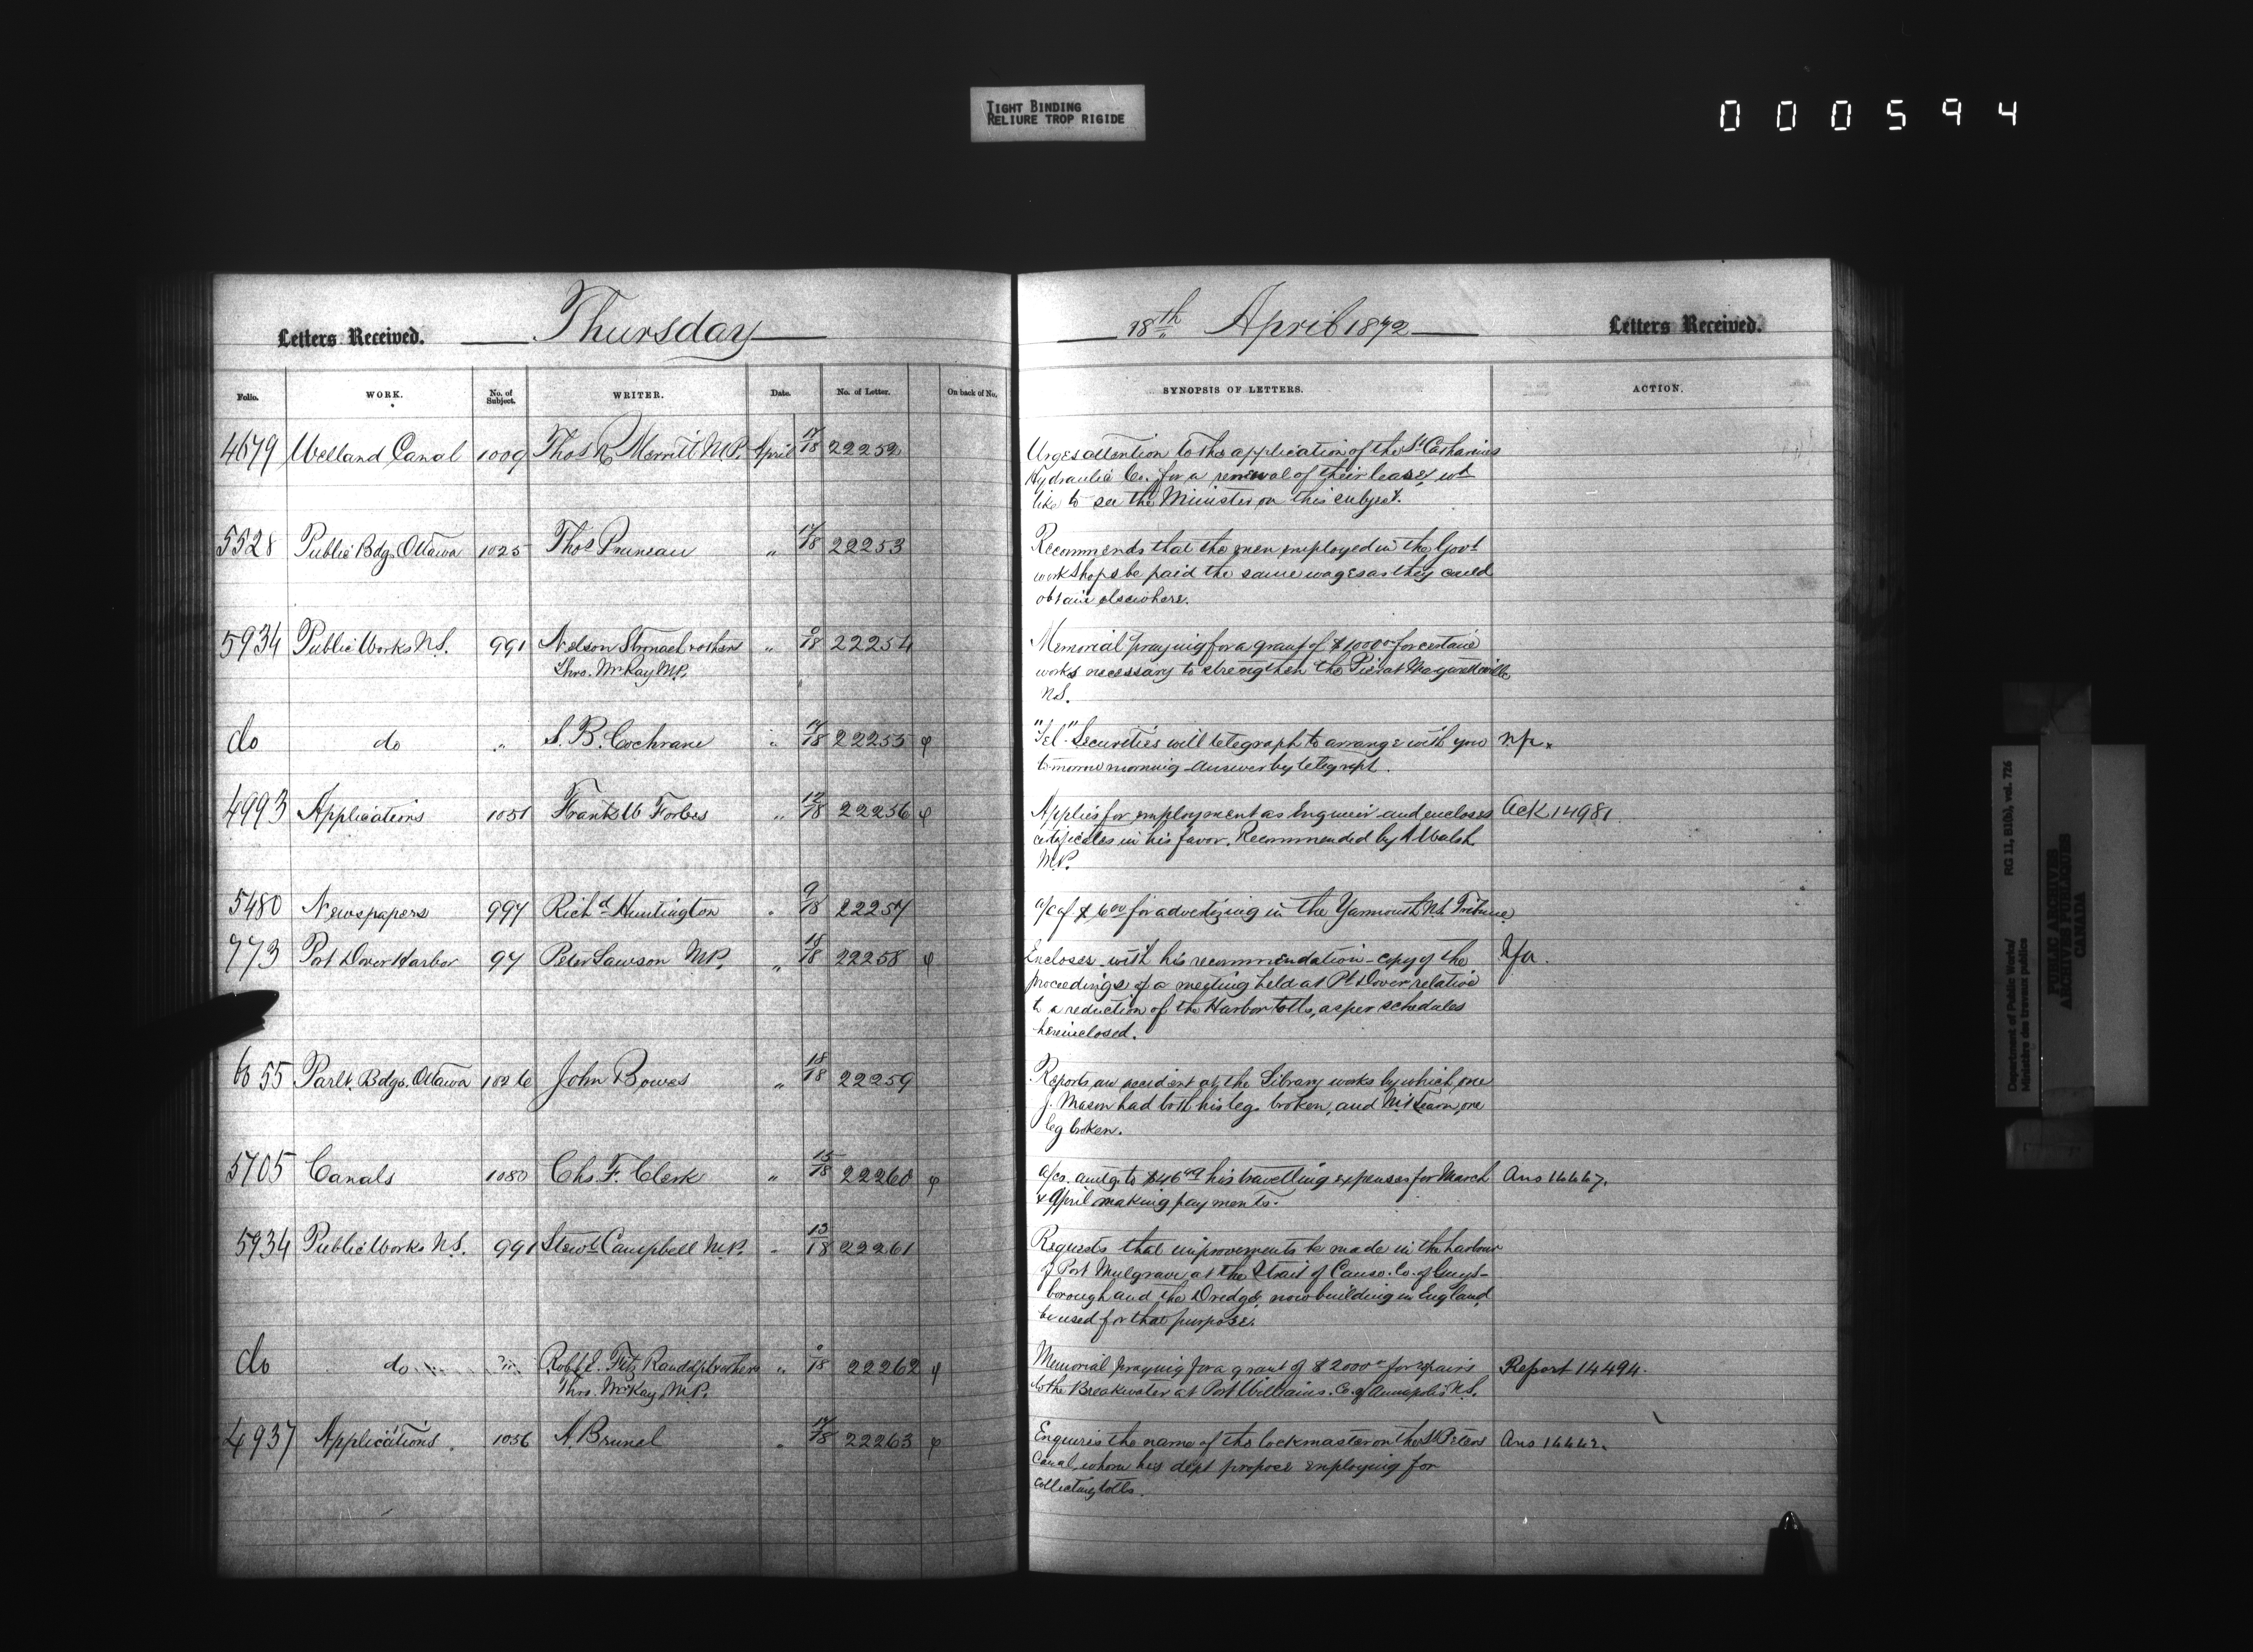 TIGHT BINDING
RELIURE TROP RIGIDE
000594
Letters Received. Thursday
18th April 1872 Letters Received.
Folio. WORK. No. of Subject. WRITER. Date. No. of Letter. On back of No. SYNOPSIS OF LETTERS. ACTION.
4679 Welland Canal 1009 Thos R Merritt M.P. April 17/18 22252
Urges attention to the application of the St Catharines
Hydraulic Co. for a renewal of their lease, wd
like to see the Minister on this subject.
5528 Public Bdgs Ottawa 1025 Thos Pruneau " 17/18 22253
Recommends that the men employed in the Govt
workshops be paid the same wages as they could
obtain elsewhere.
5934 Public Works N.S. 991 Nelson Stronach & others " 0/18 22254
Thro. McKay M.P.
Memorial praying for a grant of $1000 for certain
works necessary to strengthen the Pier at
N.S.
do do " S. B. Cochrane " 17/18 22255 φ
"Tel" Securities will telegraph to arrange with you
tomorrow morning answer by telegraph.
4993 Applications 1051 Frank W Forbes " 12/18 22256 φ
Applies for employment as Engineer and encloses Ack 14981
certificates in his favor. Recommended by A Walsh
M.P.
5480 Newspapers 997 Richd Huntington " 9/18 22257
a/c of $6 00 for advertizing in the Yarmouth N.S. Tribune
773 Port Dover Harbor 97 Peter Lawson M.P. " 18/18 22258 φ
Encloses with his recommendation copy of the
proceedings of a meeting held at Pt Dover relative
to a reduction of the Harbor tolls, as per schedules
herein closed.
6055 Parlt. Bdgs. Ottawa 1026 John Bowes " 18/18 22259
Reports an accident at the Library works by which one
J. Mason had both his legs broken, and one
leg broken.
5705 Canals 1080 Chs. F. Clerk " 15/18 22260 φ
a/cs. amtg to $46 49 his travelling expenses for March Ans 14447.
& April making payments.
5934 Public Works N.S. 991 Stewt Campbell M.P. " 13/18 22261
Requests that improvements be made in the harbour
of Port Mulgrave at the Strait of Canso. Co. of Guys-
borough and the Dredge, now building in England,
be used for that purpose.
do do Robt E. Fitz Randolph & others " 0/18 22262 φ
Thro. McKay M.P.
Memorial praying for a grant of $2000 for repairs Report 14494.
to the Breakwater at Port Williams. Co. of Annapolis N.S.
4937 Applications 1056 A. Brunel " 17/18 22263 φ
Enquires the name of the lockmaster on the St Peters Ans 14442.
Canal, whom his dept propose employing for
collecting tolls.
Department of Public Works/ RG 11, B1(b), vol. 726
Ministère des travaux publics
PUBLIC ARCHIVES
ARCHIVES PUBLIQUES
CANADA